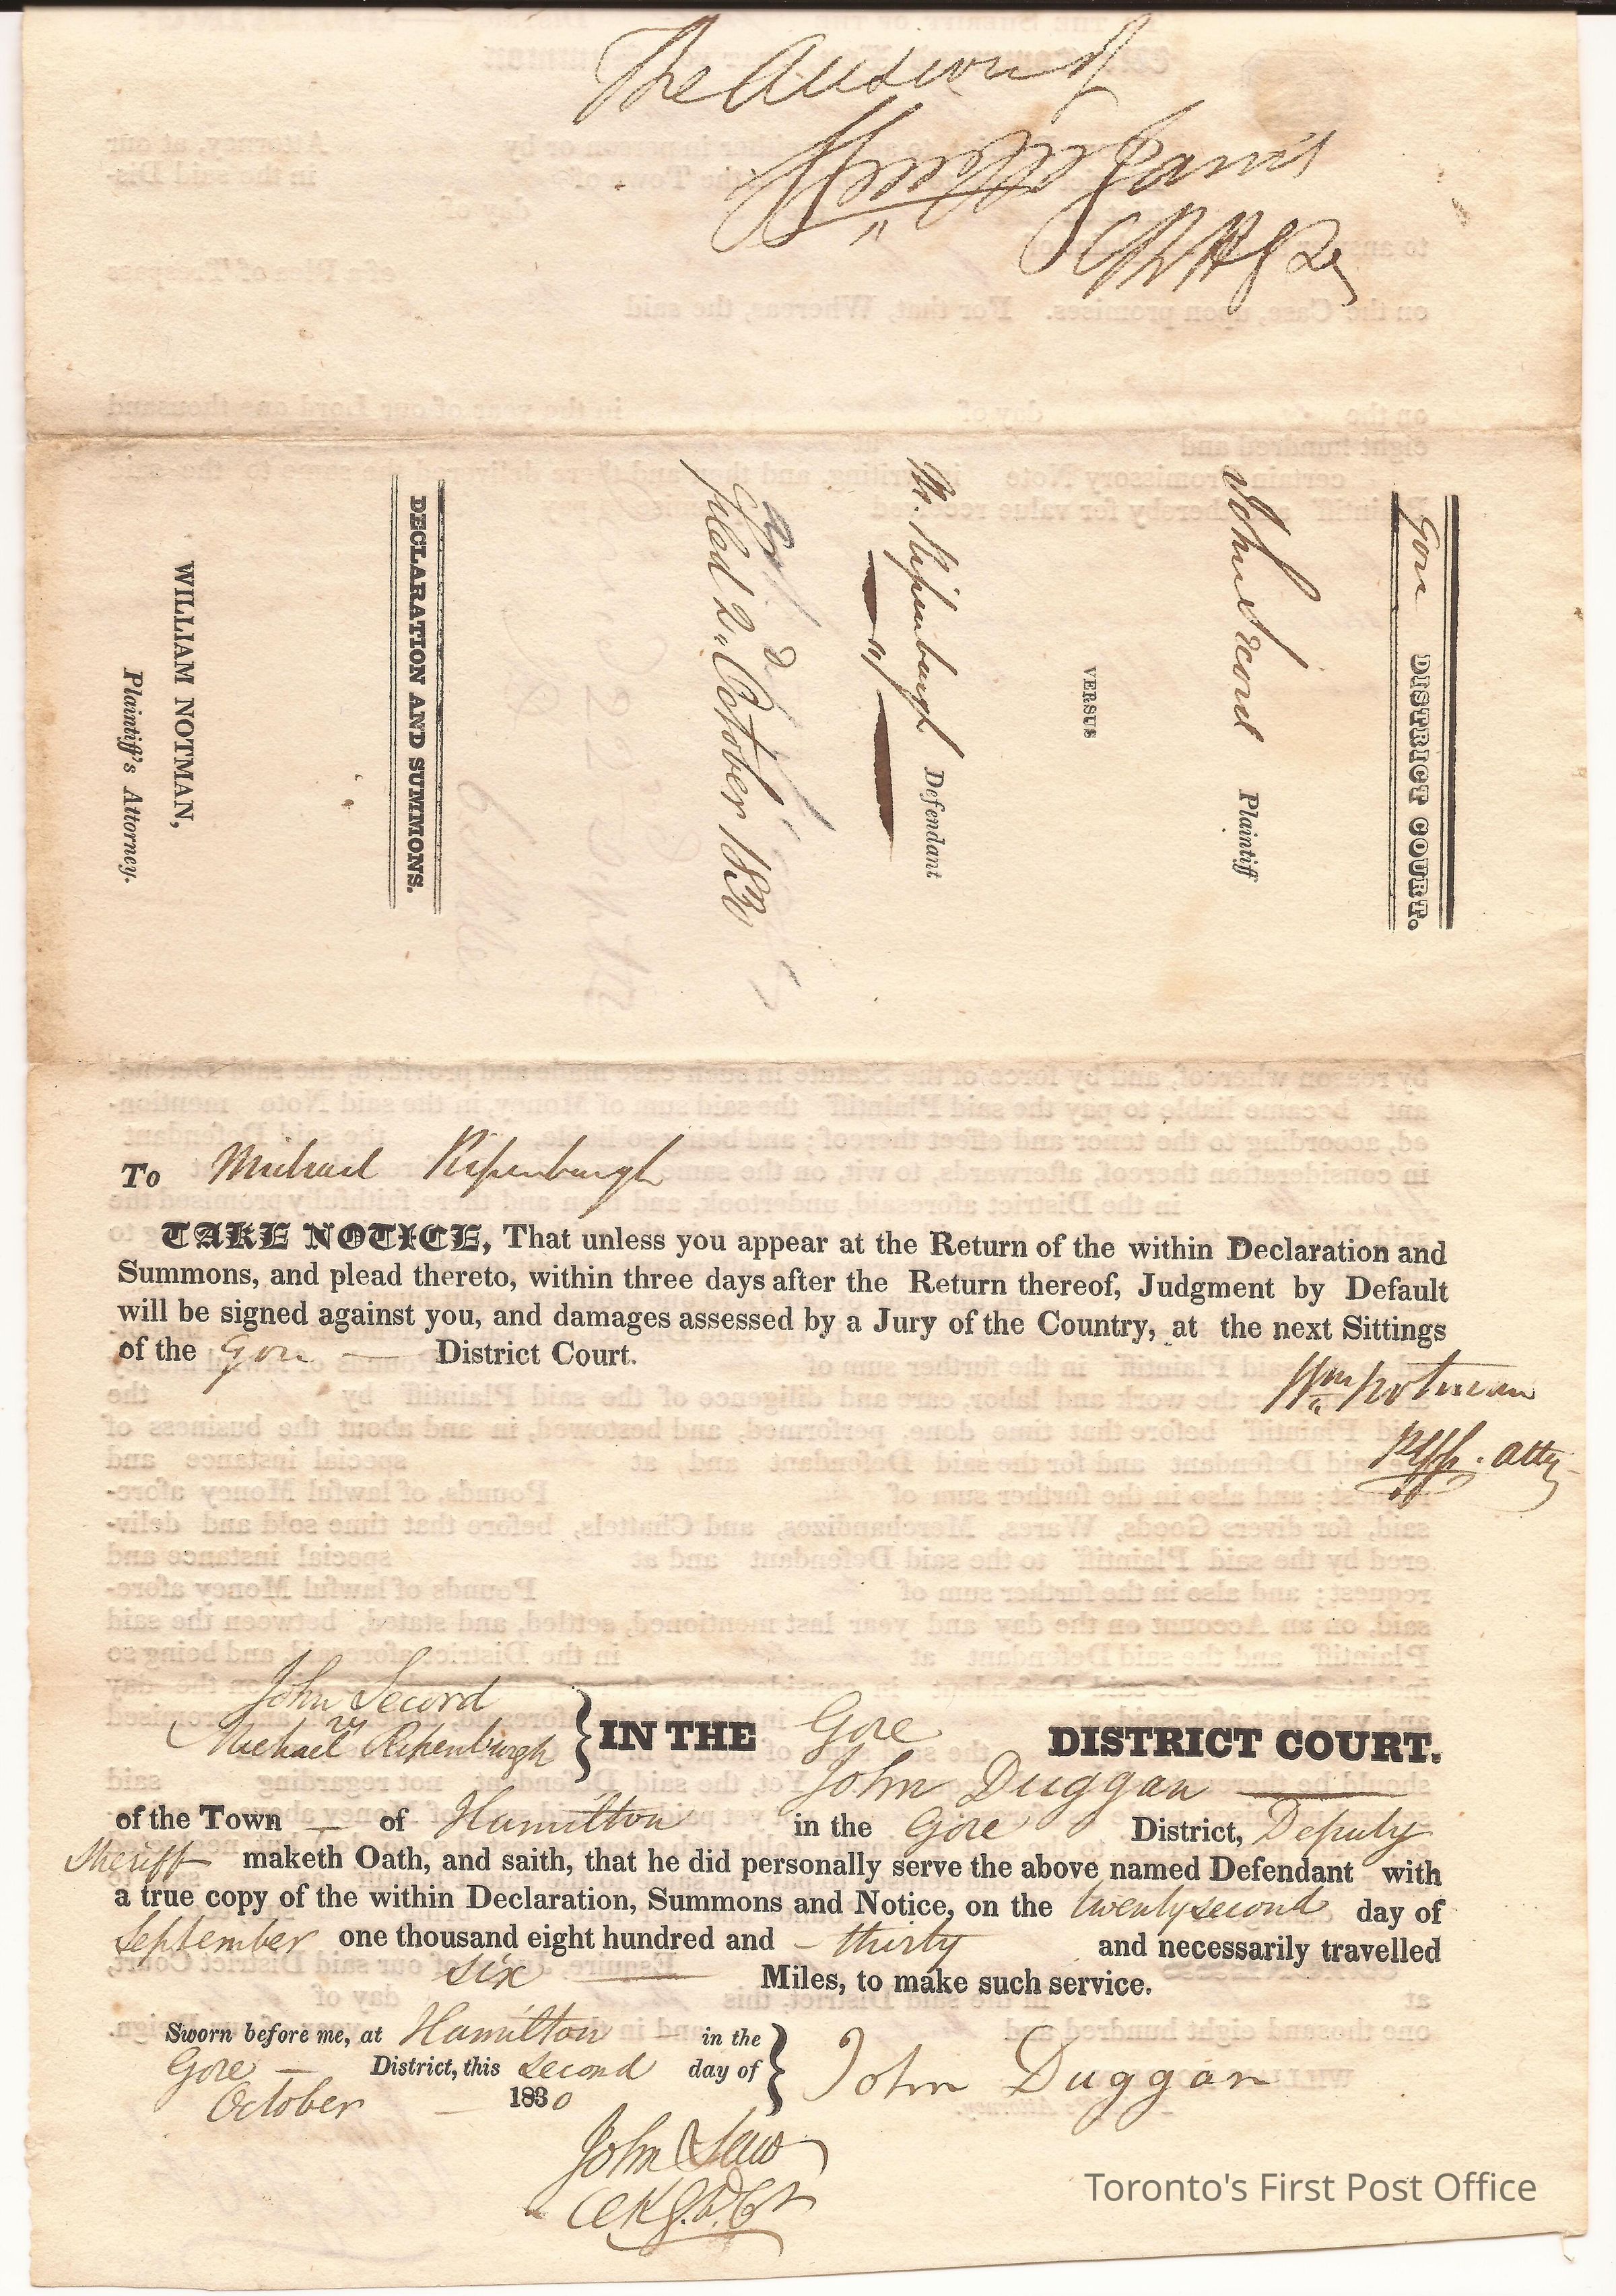 The Answer of
Gore DISTRICT COURT.
John Secord Plaintiff
VERSUS
M. Ripenburgh Defendant
Filed 2nd October 1830
DECLARATION AND SUMMONS.
WILLIAM NOTMAN,
Plaintiff's Attorney.
To Michael Ripenburgh
TAKE NOTICE, That unless you appear at the Return of the within Declaration and
Summons, and plead thereto, within three days after the Return thereof, Judgment by Default
will be signed against you, and damages assessed by a Jury of the Country, at the next Sittings
of the Gore District Court.
Wm Notman
Plffs. Atty
John Secord
vs
Michael Ripenburgh } IN THE Gore DISTRICT COURT.
John Duggan
of the Town of Hamilton in the Gore District, Deputy
Sheriff maketh Oath, and saith, that he did personally serve the above named Defendant with
a true copy of the within Declaration, Summons and Notice, on the twenty second day of
September one thousand eight hundred and thirty and necessarily travelled
six Miles, to make such service.
Sworn before me, at Hamilton in the
Gore District, this second day of
October 1830
John Duggan
John Law